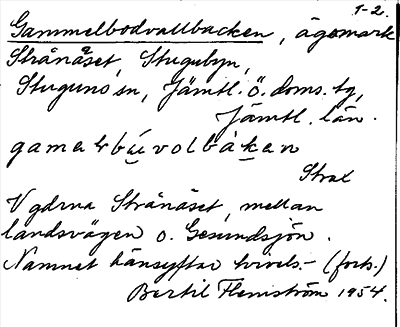 1-2.
Gammelbodvallbacken, ägomark
Strånäset, Stugubyn,
Stuguno sn, Jämtl. ö. doms. tg,
Jämtl. län.
gamalbúvolbákan
Strax
V gdrna Strånäset, mellan
landsvägen o. Gesundsjön.
Namnet hänsyftar tvivels- (forts.)
Bertil Flemström 1954.